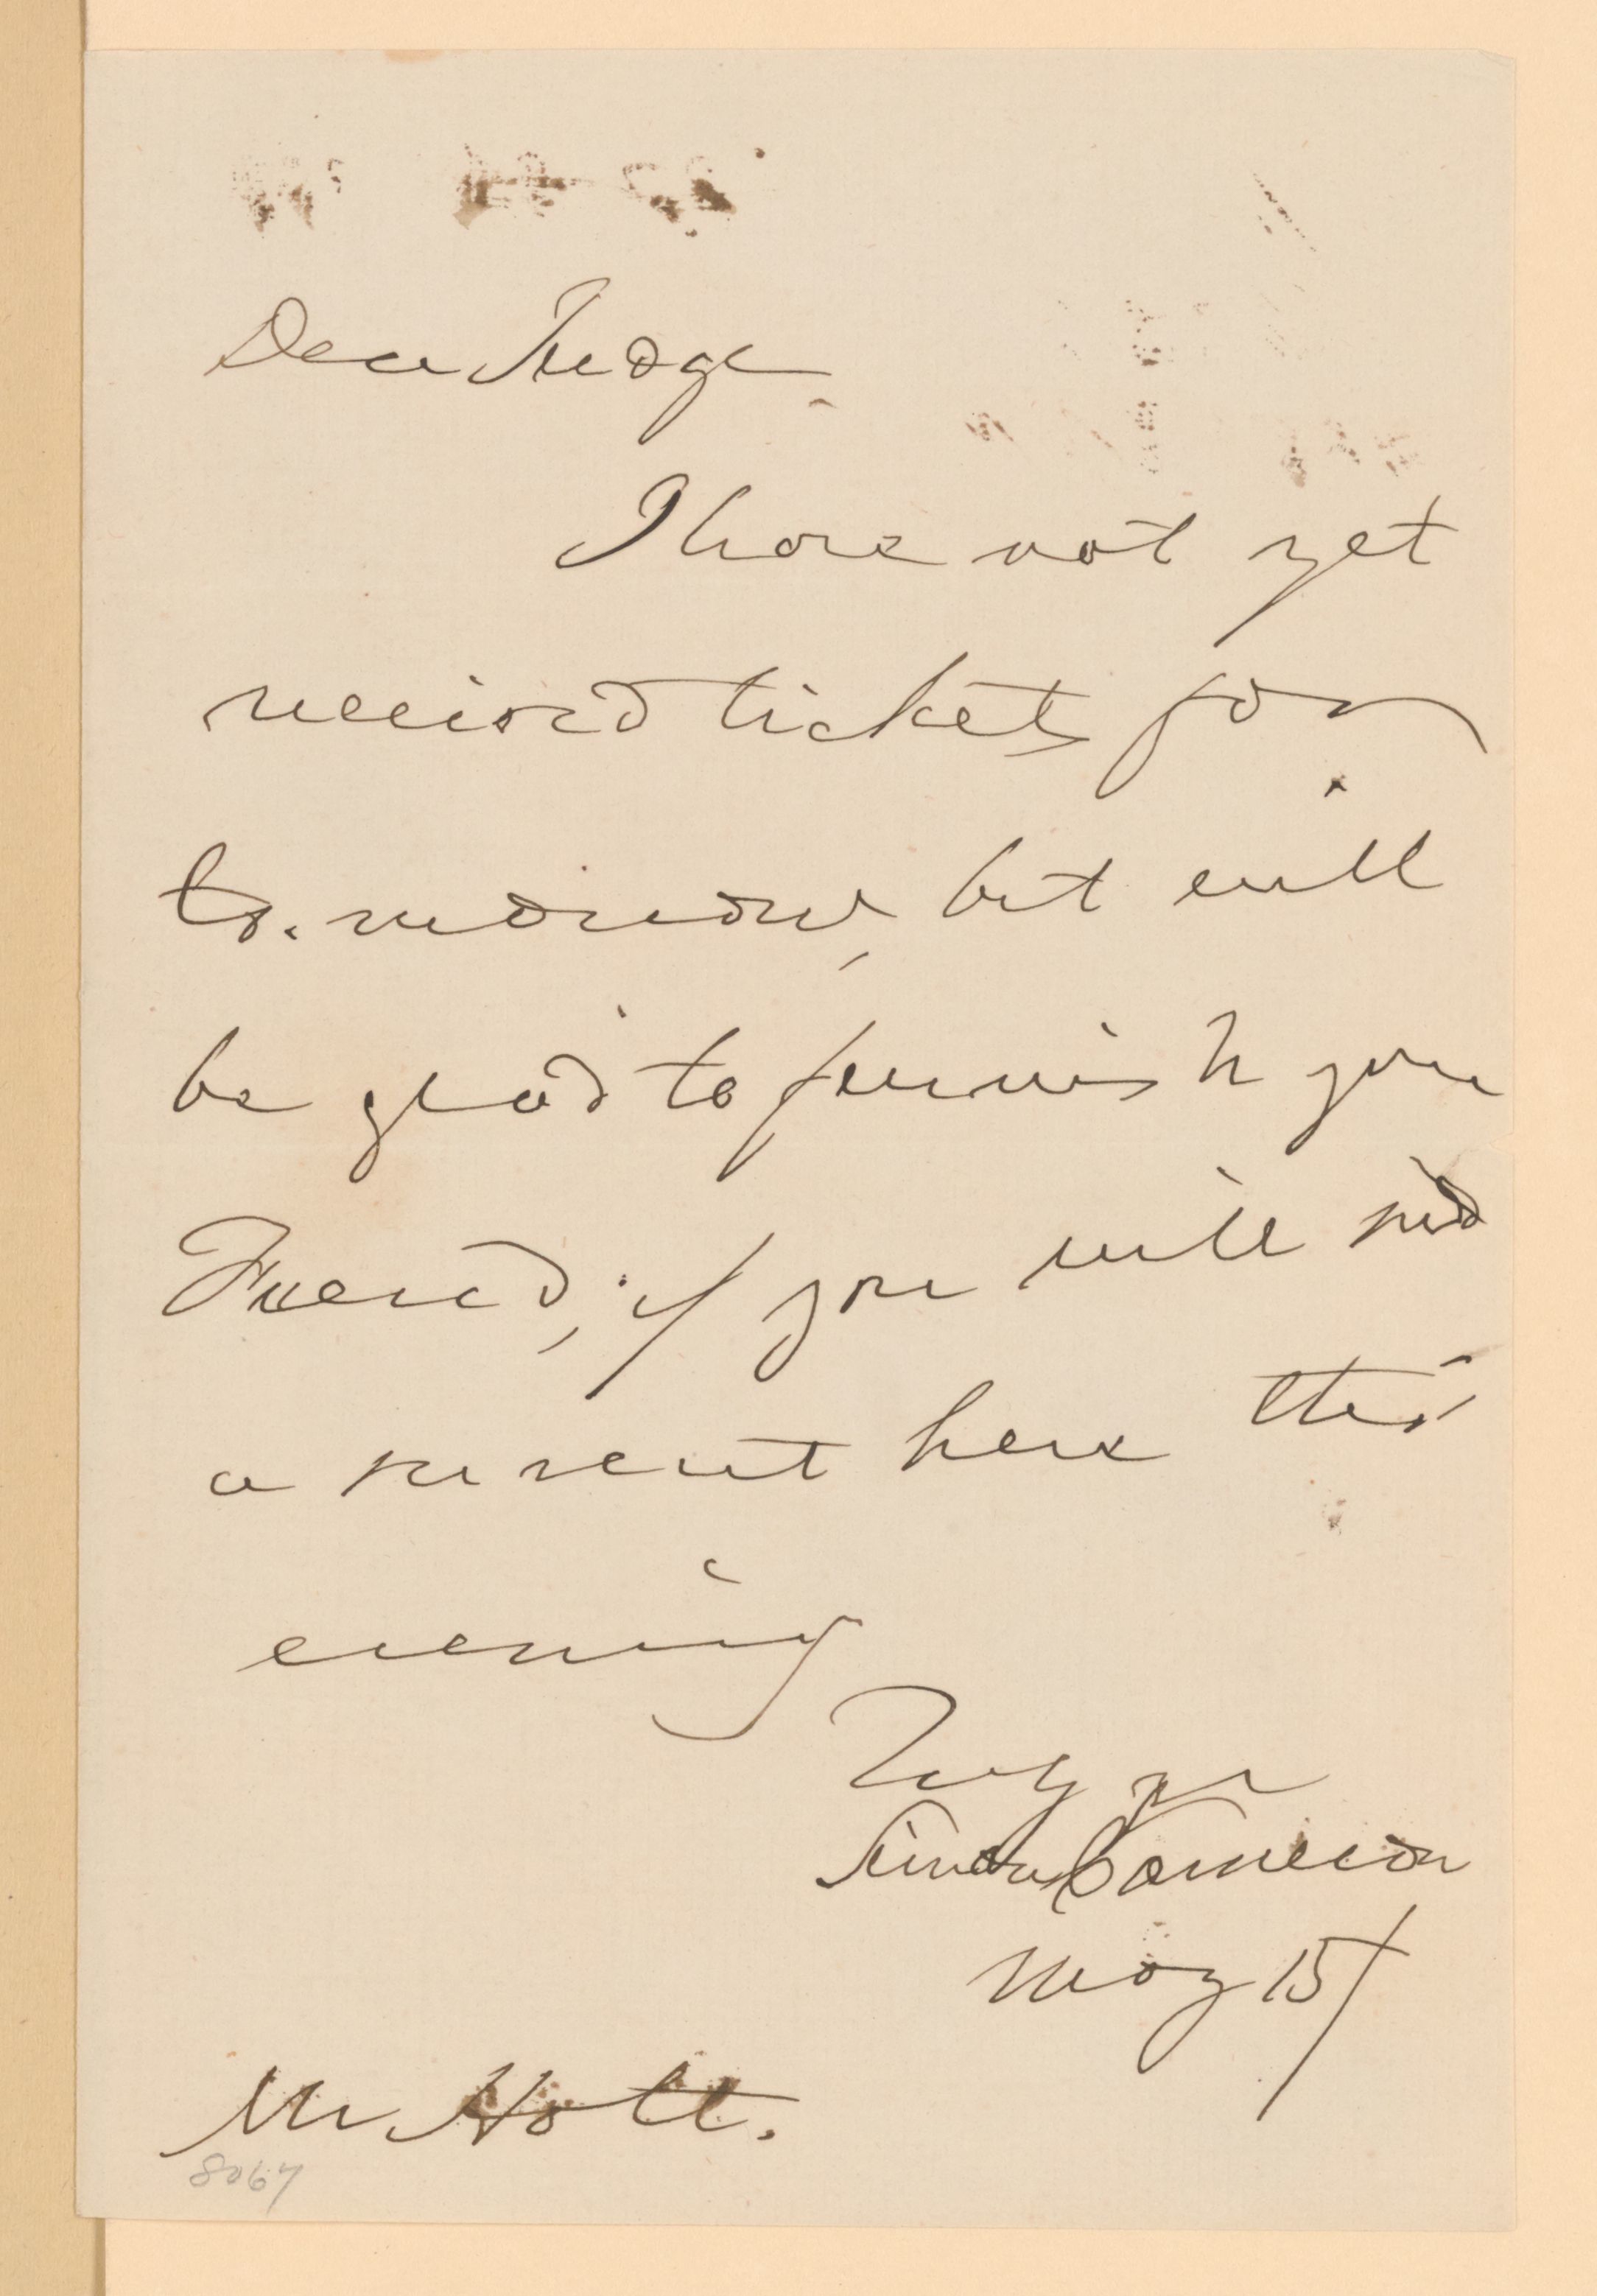 Dear Judge
I have not yet
received tickets for
to.morrow, but will
be glad to furnish your
Friend, if you will send
a servant here this
evening
Truly yr
Simon Cameron
May 15/
Mr Holt.
8067